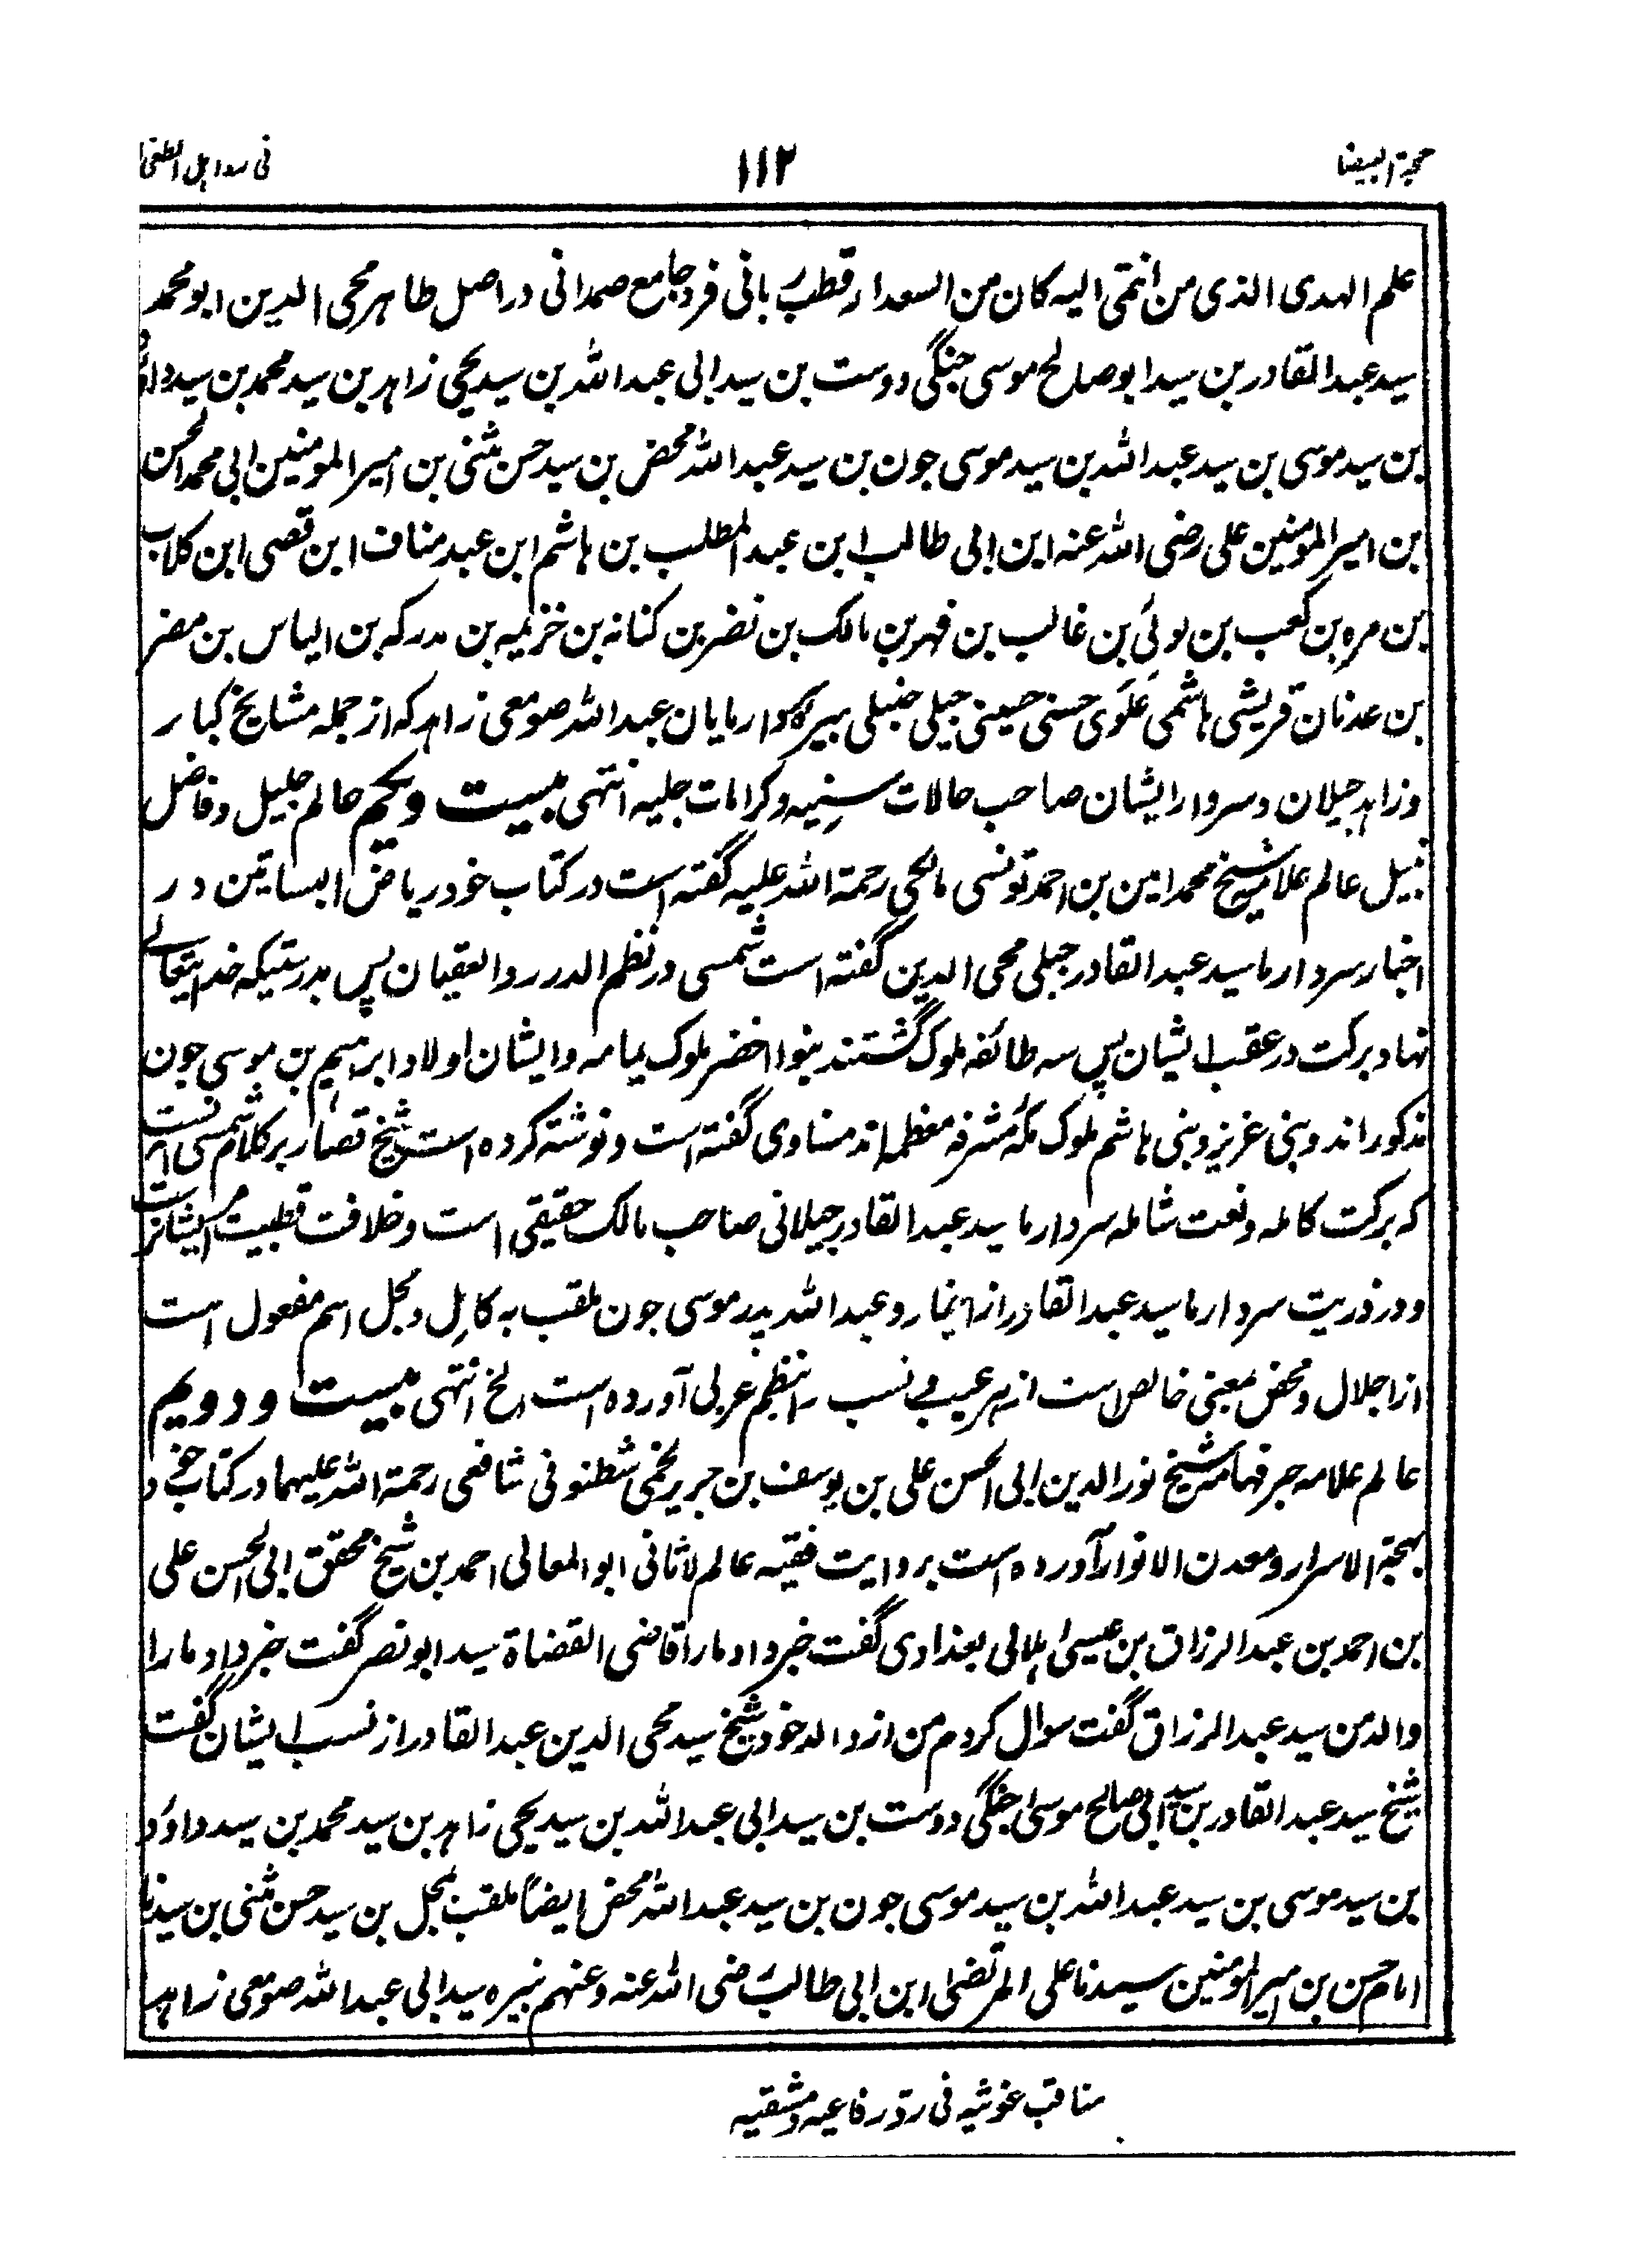 حجۃ البیضا ۱۱۲ فی رد اہل الطغی
علم الہدی الذی من انتمی الیہ کان من السعداء قطب ربانی فرد جامع صمدانی در اصل طاہر محی الدین ابو محمد
سید عبد القادر بن سید ابو صالح موسی جنگی دوست بن سید ابی عبد اللہ بن سید یحیی زاہد بن سید محمد بن سید داؤد
بن سید موسی بن سید عبد اللہ بن سید موسی جون بن سید عبد اللہ محض بن سید حسن مثنی بن امیر المومنین ابی محمد الحسن
بن امیر المومنین علی رضی اللہ عنہ ابن ابی طالب ابن عبد المطلب بن ہاشم ابن عبد مناف ابن قصی ابن کلاب
بن مرہ بن کعب بن لوئی بن غالب بن فہر بن مالک بن نضر بن کنانہ بن خزیمہ بن مدرکہ بن الیاس بن مضر
بن عدنان قریشی ہاشمی علوی حسنی حسینی جیلی حنبلی عبد اللہ صومعی زاہد کہ از جملہ مشایخ کبار
وزاہد جیلان وسردار ایشان صاحب حالات سنیہ وکرامات جلیہ انتہی بیست ویکم عالم جلیل وفاضل
نبیل عالم علامہ شیخ محمد امین بن احمد تونسی مالکی رحمۃ اللہ علیہ گفتہ است در کتاب خود ریاض البساتین در
اخبار سردار ما سید عبد القادر جیلی محی الدین گفتہ است شمسی در نظم الدرر والعقیان پس بدرستیکہ خدایتعالے
نہاد برکت در عقب ایشان پس سہ طائفہ ملوک گشتند بنو اخضر ملوک یمامہ وایشان اولاد ابرہیم بن موسی جون
مذکور اند وبنی عزیز وبنی ہاشم ملوک مکۂ مشرفہ معظمہ اند مناوی گفتہ است ونوشتہ کردہ است شیخ قصار بر کلام شمسی
کہ برکت کاملہ ونعت شاملہ سردار ما سید عبد القادر جیلانی صاحب مالک حقیقی است وخلافت قطبیت
ودر ذریت سردار ما سید عبد القادر از وعبد اللہ پدر موسی جون ملقب بہ کامل ومجل اسم مفعول است
از اجلال ومحض بمعنی خالص است از ہر عیب نسب را بنظم عربی آوردہ است الخ انتہی بیست ودویم
عالم علامہ حبر فہامہ شیخ نور الدین ابی الحسن علی بن یوسف بن جریر لخمی شطنوفی شافعی رحمۃ اللہ علیہما در کتاب خود
بہجۃ الاسرار ومعدن الانوار آوردہ است بروایت فقیہ عالم لاثانی ابو المعالی احمد بن شیخ محقق ابی الحسن علی
بن احمد بن عبد الرزاق بن عیسی ہلالی بغدادی گفت خبر داد مارا قاضی القضاۃ سید ابو نصر گفت خبر داد مارا
والد من سید عبد الرزاق گفت سوال کردم من از والد خود شیخ سید محی الدین عبد القادر از نسب ایشان گفت
شیخ سید عبد القادر بن سید ابی صالح موسی جنگی دوست بن سید ابی عبد اللہ بن سید یحیی زاہد بن سید محمد بن سید داؤد
بن سید موسی بن سید عبد اللہ بن سید موسی جون بن سید عبد اللہ محض ایضاً ملقب بمجل بن سید حسن مثنی بن سیدنا
امام حسن بن امیر المومنین سیدنا علی المرتضی ابن ابی طالب رضی اللہ عنہ وعنہم نبیرہ سید ابی عبد اللہ صومعی زاہد
مناقب غوثیہ فی رد رفاعیہ دمشقیہ